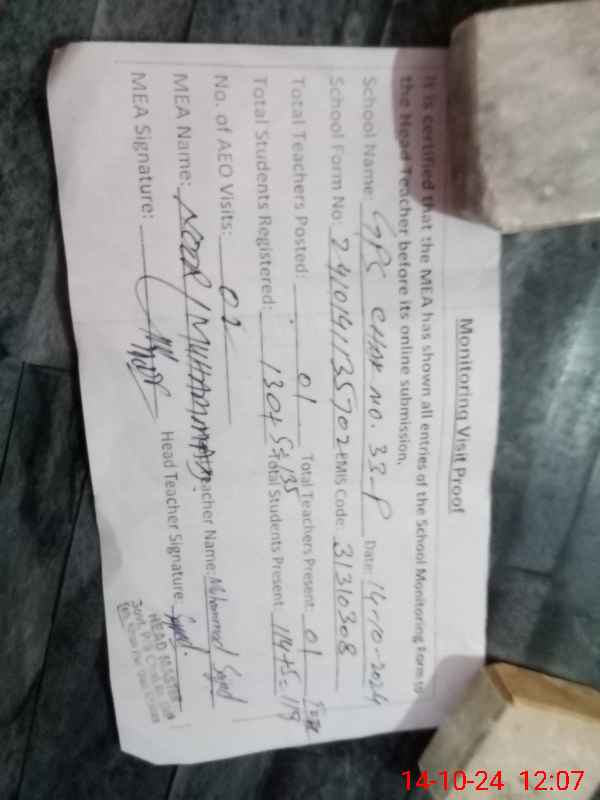 Monitoring Visit Proof
It is certified that the MEA has shown all entries of the School Monitoring Form to
the Head Teacher before its online submission.
School Name: GPS CHAK NO. 33-P Date: 14-10-2024
School Form No: 2410191135702 EMIS Code: 31310308
Total Teachers Posted: 01 Total Teachers Present: 01
Total Students Registered: 130+5=135 Total Students Present: 114+5=119
No. of AEO Visits: 02
MEA Name: NOOR MUHAMMAD Teacher Name: Mohammad Sajid
MEA Signature: Head Teacher Signature: Sajid
HEAD MASTER
14-10-24 12:07